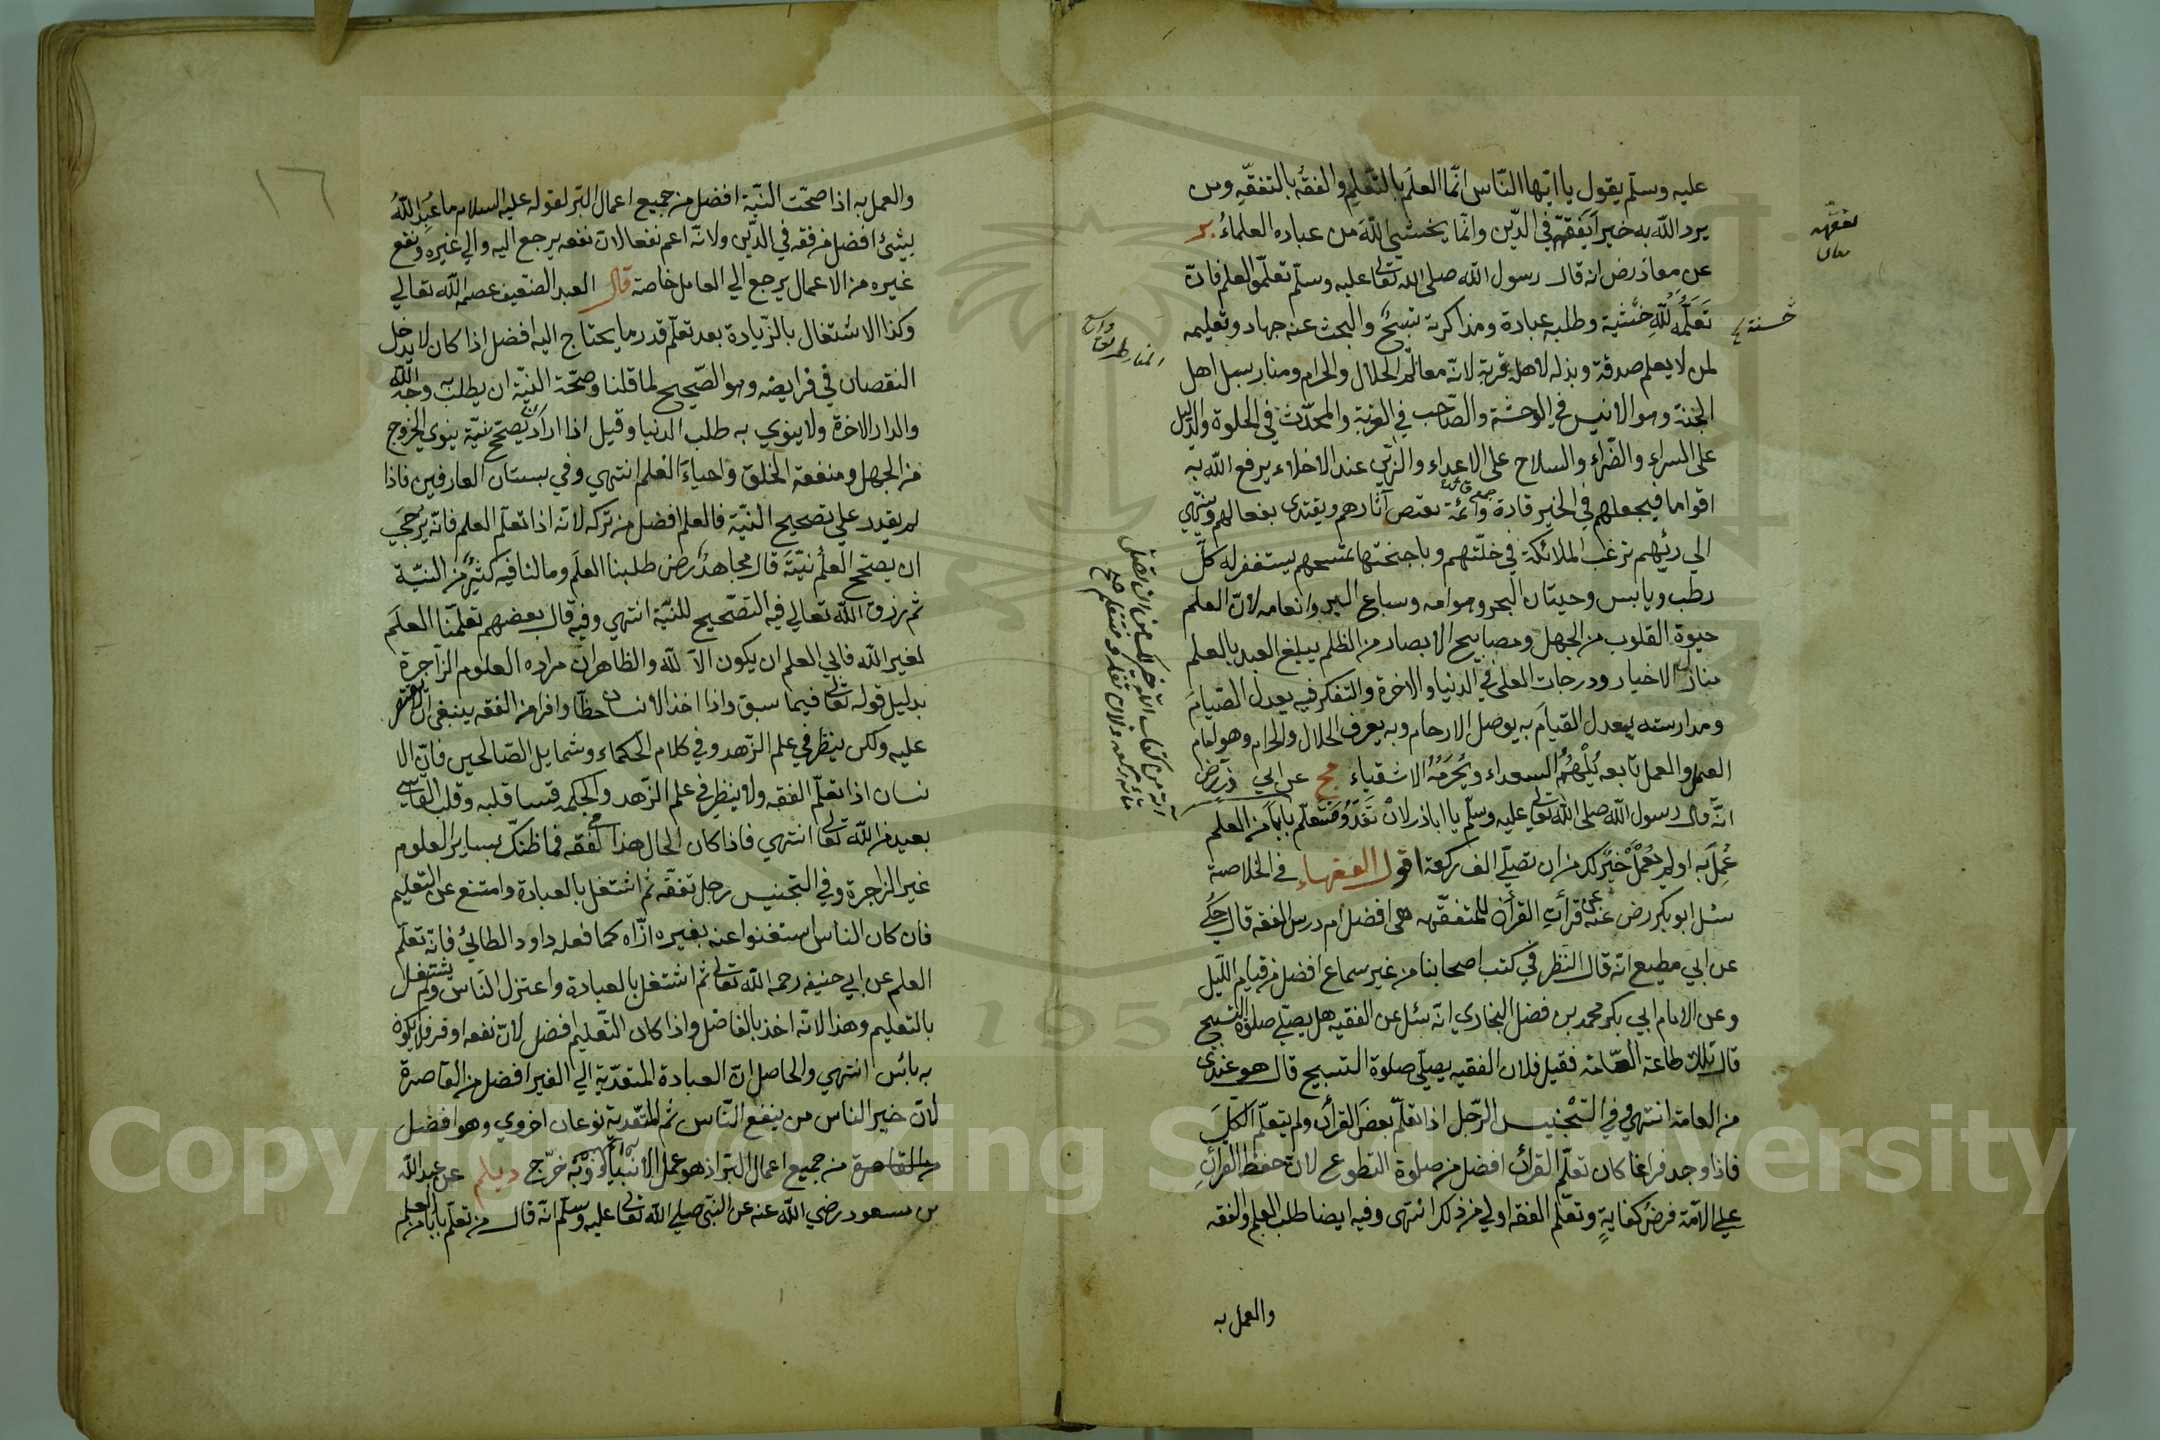 عليه وسلم يقول يا ايها الناس انما العلم بالتعلم والفقه بالتفقه ومن
يرد الله به خيرا يفقهه في الدين وانما يخشى الله من عباده العلماء بر
عن معاذ رض انه قال رسول الله صلى الله تعالى عليه وسلم تعلموا العلم فان
تعلمه لله خشية وطلبه عبادة ومذاكرته تسبيح والبحث عنه جهاد وتعليمه
لمن لا يعلم صدقة وبذله لاهله قربة لانه معالم الحلال والحرام ومنار سبل اهل
الجنة وهو الانيس في الوحشة والصاحب في الغربة والمحدث في الخلوة والدليل
على السراء والضراء والسلاح على الاعداء والزين عند الاخلاء يرفع الله به
اقواما فيجعلهم في الخير قادة وائمة يقتص آثارهم ويقتدى بفعالهم وينتهي
الي رئيهم ترغب الملائكة في خلتهم وباجنحتها تمسحهم يستغفر له كل
رطب ويابس وحيتان البحر وهوامه وسباع البر وانعامه لان العلم
حيوة القلوب من الجهل ومصابيح الابصار من الظلم يبلغ العبد بالعلم
منازل الاخيار ودرجات العلى في الدنيا والاخرة والتفكر فيه يعدل الصيام
ومدارسته يعدل القيام به يوصل الارحام وبه يعرف الحلال والحرام وهو امام
العمل والعمل تابعه يلهمه السعداء ويحرمه الاشقياء مج عن ابي ذر رض
انه قال رسول الله صلى الله تعالى عليه وسلم يا اباذر لان تغدو فتتعلم بابا من العلم
عمل به او لم يعمل خير لك من ان تصلي الف ركعة اقول الفقهاء في الخلاصة
سئل ابو بكر رض عنه عن قرأت القرأن للمتفقه هي افضل ام درس الفقه قال حكي
عن ابي مطيع انه قال النظر في كتب اصحابنا من غير سماع افضل من قيام الليل
وعن الامام ابي بكر محمد بن فضل البخاري انه سئل عن الفقيه هل يصلي صلوة التسبيح
قال تلك طاعة العامة فقيل فلان الفقيه يصلي صلوة التسبيح قال هو عندي
من العامة انتهي وفي التجنيس الرجل اذا تعلم بعض القرأن ولم يتعلم الكل
فاذا وجد فراغا كان تعلم القرأن افضل من صلوة التطوع لان حفظ القرأن
علي الامة فرض كفاية وتعلم الفقه اولي من ذلك انتهى وفيه ايضا طلب العلم والفقه
والعمل به
تفقهه
حسنة
١٦
والعمل به اذا صحت النية افضل من جميع اعمال البر لقوله عليه السلام ما عبد الله
بشئ افضل من فقه في الدين ولانه اعم نفعا لان نفعه يرجع اليه والي غيره ونفع
غيره من الاعمال يرجع الي العامل خاصة قال العبد الضعيف عصمه الله تعالي
وكذا الاشتغال بالزيادة بعد تعلم قدر ما يحتاج اليه افضل اذا كان لا يدخل
النقصان في فرايضه وهو الصحيح لما قلنا وصحة النية ان يطلب به وجه الله
والدار الاخرة ولا ينوي به طلب الدنيا وقيل اذا اراد ان يصحح نيته ينوي الخروج
من الجهل ومنفعة الخلق واحياء العلم انتهي وفي بستان العارفين فاذا
لم يقدر علي تصحيح النية فالعلم افضل من تركه لانه اذا تعلم العلم فانه يرجي
ان يصحح العلم نيته قال مجاهد رض طلبنا العلم وما لنا فيه كثير من النية
ثم رزق الله تعالي فيه التصحيح للنية انتهي وفيه قال بعضهم تعلمنا العلم
لغير الله فابي العلم ان يكون الا لله والظاهر ان مراده العلوم الزاجرة
بدليل قوله تعالى فيما سبق واذا اخذ الانسان حظا وافرا من الفقه ينبغي ان لا يقتصر
عليه ولكن ينظر في علم الزهد وفي كلام الحكماء وشمايل الصالحين فان الا
نسان اذا تعلم الفقه ولا ينظر في علم الزهد والحكمه قسا قلبه وقلب القاسي
بعيد من الله تعالى انتهي فاذا كان الحال هذا في الفقه فما ظنك بساير العلوم
غير الزاجرة وفي التجنيس رجل تفقه ثم اشتغل بالعبادة وامتنع عن التعليم
فان كان الناس استغنوا عنه بغيره اجزاه كما فعله داود الطائي فانه تعلم
العلم عن ابي حنيفه رحمه الله تعالى ثم اشتغل بالعبادة واعتزل الناس ولم يشتغل
بالتعليم وهذا لانه اخذ بالفاضل واذا كان التعليم افضل لان نفعه اوفر فلا يكون
به بائس انتهي والحاصل ان العبادة المتعدية الي الغير افضل من القاصرة
لان خير الناس من ينفع الناس ثم المتعدية نوعان اخروي وهو افضل
من جميع اعمال البر اذ هو عمل الانبياء خرج ديلم عن عبد الله
بن مسعود رضي الله عنه عن النبي صلي الله تعالى عليه وسلم انه قال من تعلم بابا من العلم
Copyright © King Saud University
1957